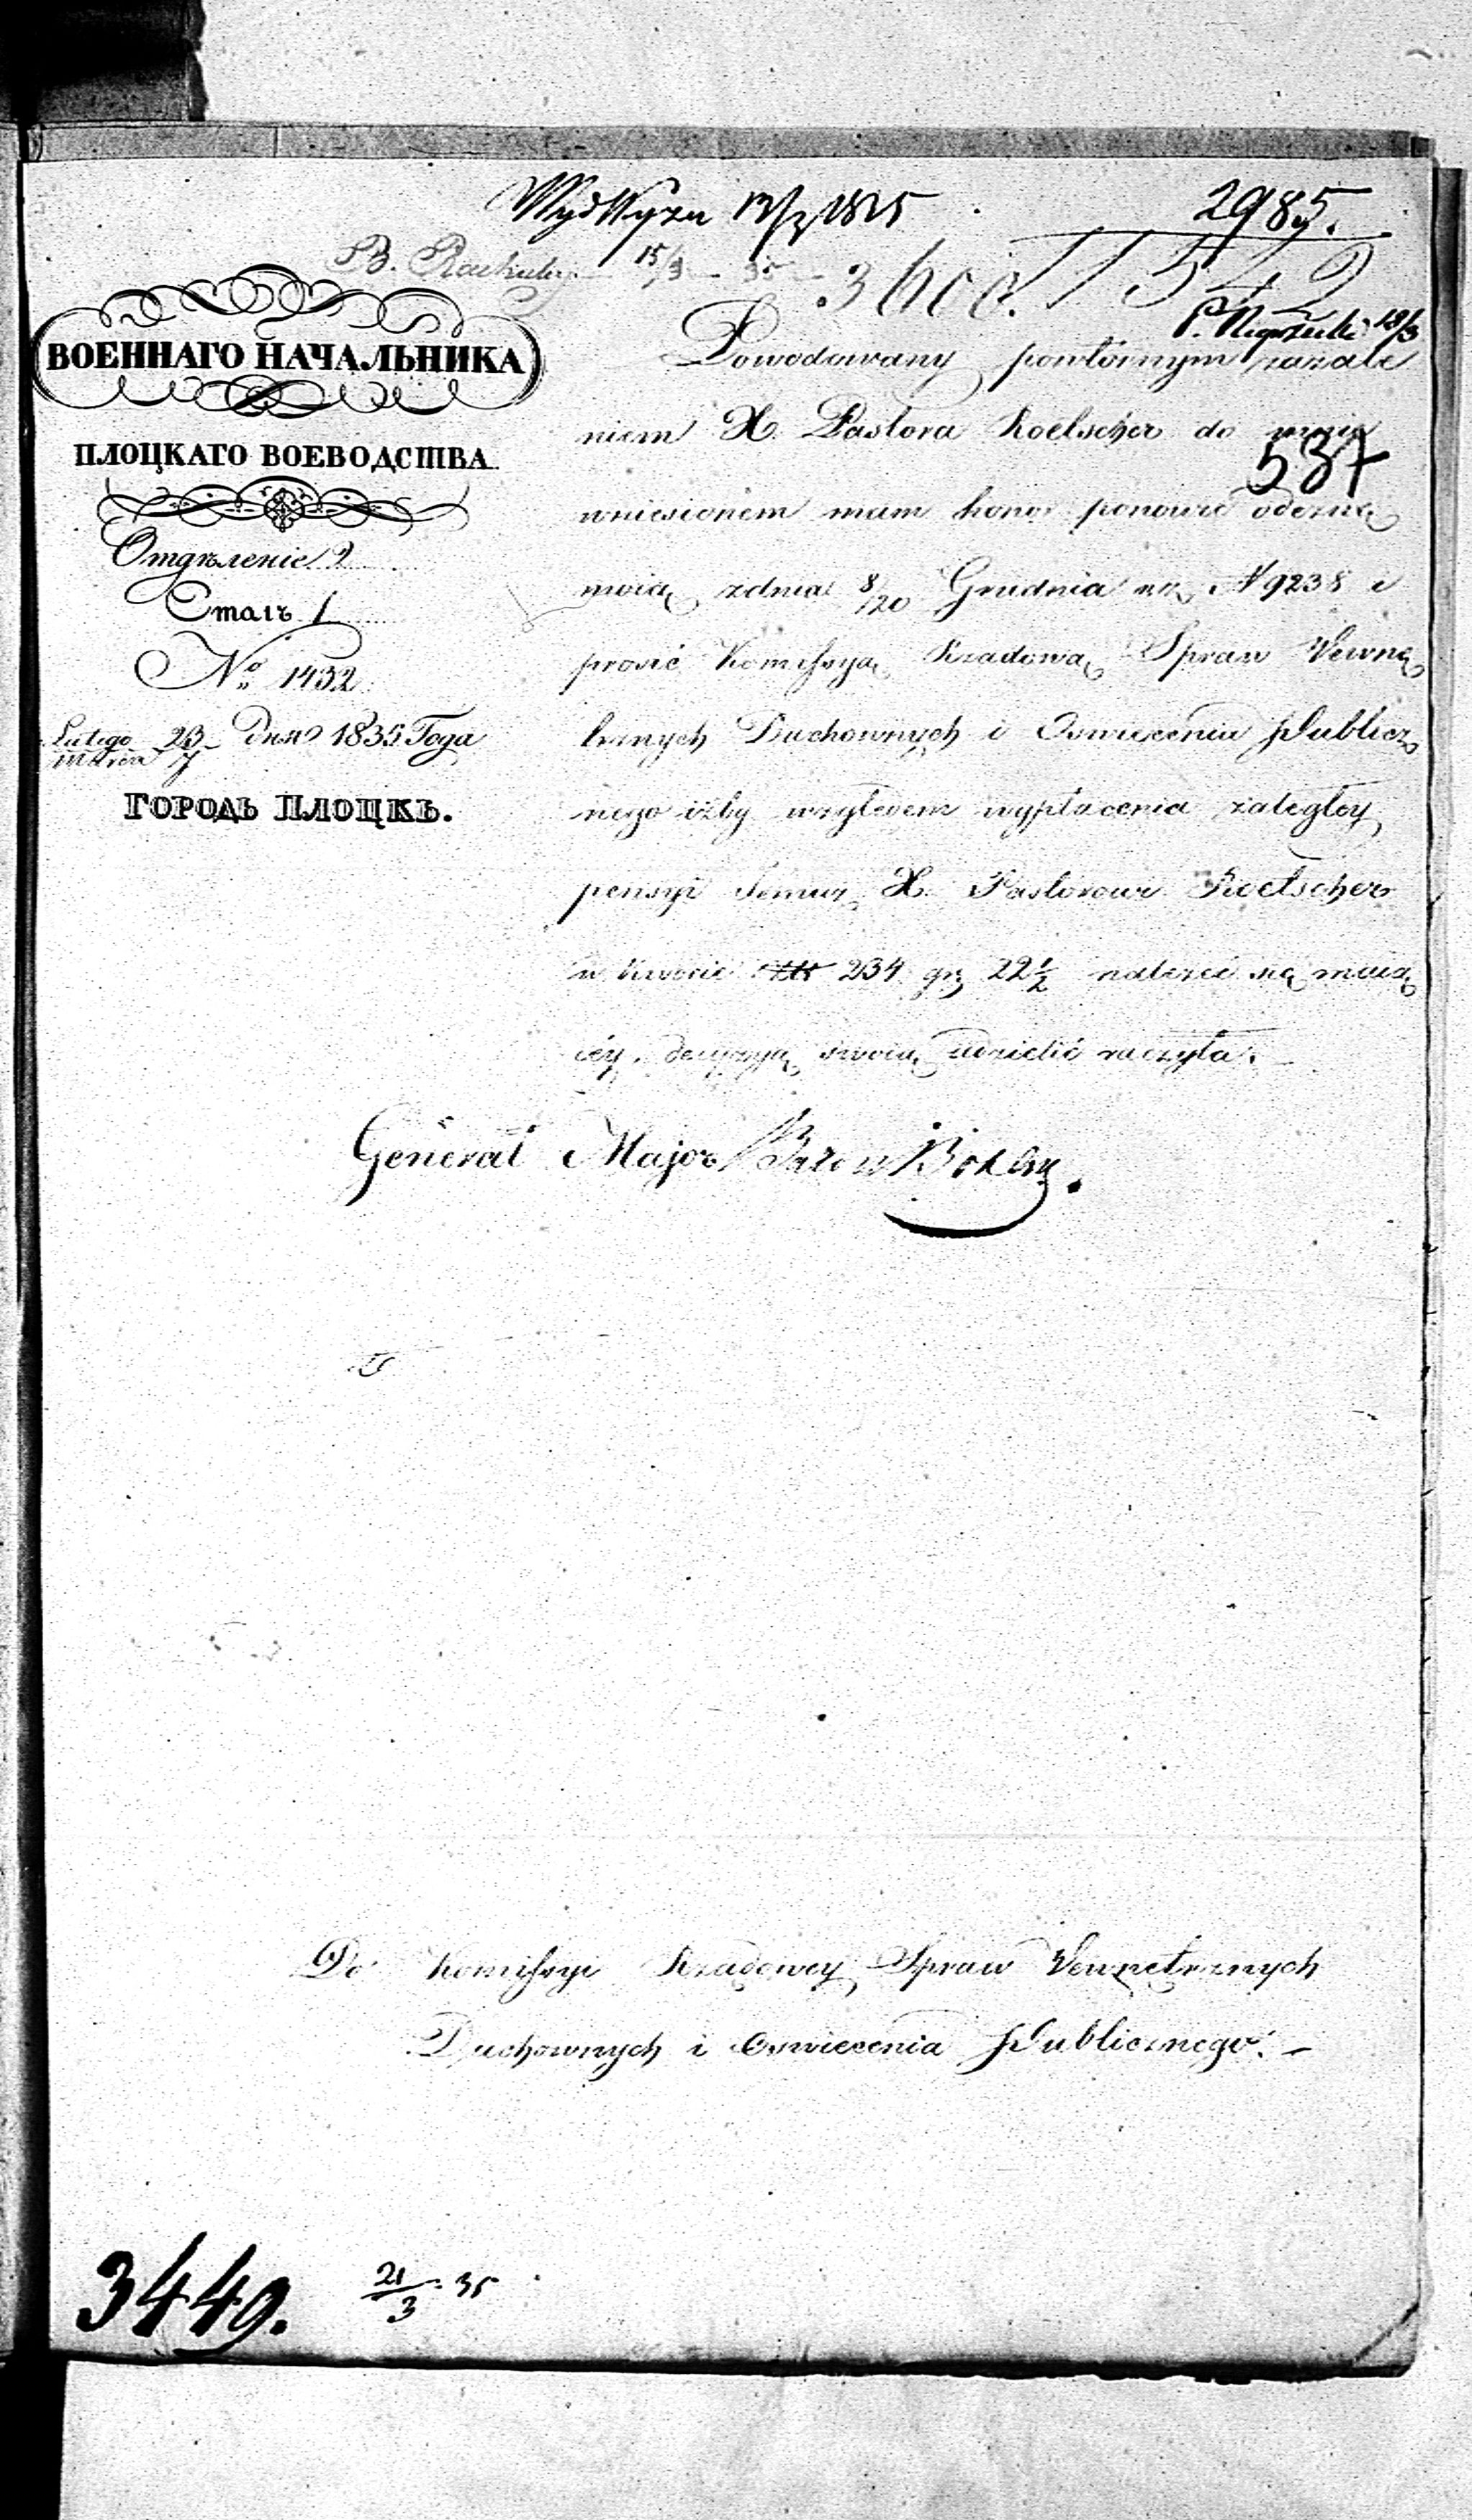 2985.
1542
B. 15/3 - 35 -
18/3
ВОЕННАГО НАЧАЛЬНИКА
ПЛОЦКАГО ВОЕВОДСТВА
Отдѣленіе 2
Столъ 1
№ 1432
Lutego 23 Дня 1835 Года
Marca 7
ГОРОДЪ ПЛОЦКЪ.
Powodowany powtórnym zażale
niem X. Pastora Roelscher do mnie
537
wniesionem mam honor ponowić odezwę
moią z dnia 8/20 Grudnia r.z. N 9238 i
prosić Kommissyą Rządową Spraw Wewnę
trznych Duchownych i Oswiecenia Publicz
nego iżby względem wypłacenia zaległey
pensyi temuż X. Pastorowi Roelscher
w kwocie złt 234 gr 22½ należeć się maią
cey, decyzyą swoią udzielić raczyła.
Generał Major Baron
Do Kommissyi Rządowey Spraw Wewnętrznych
Duchownych i Oswiecenia Publicznego. –
3449. 21/3 35